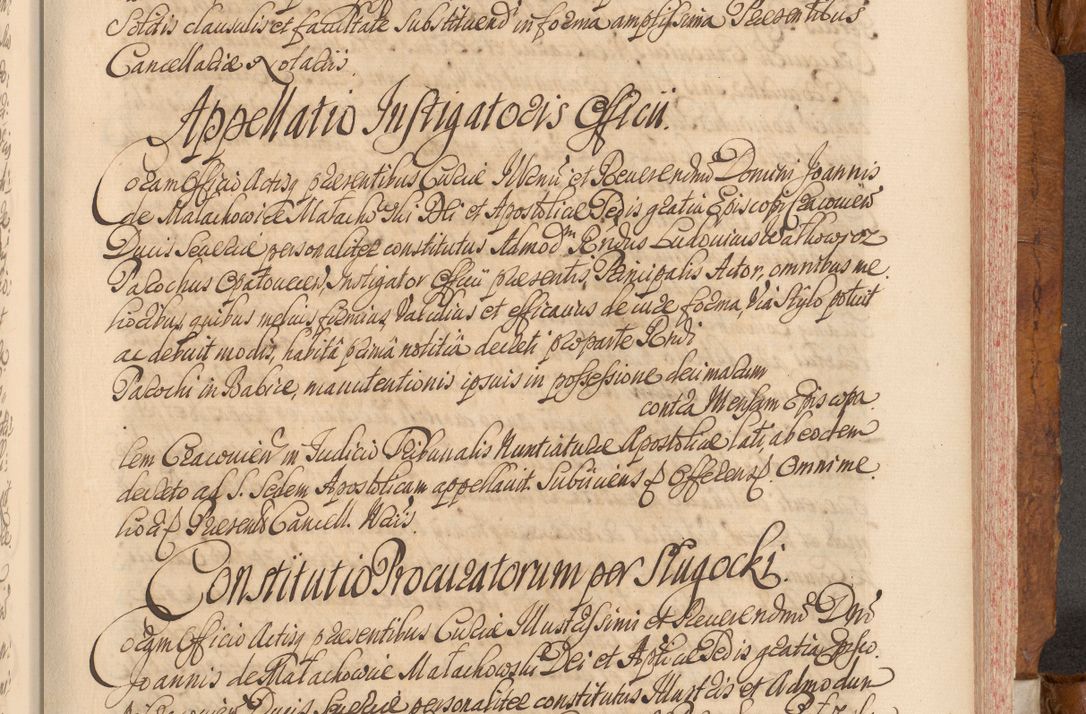 Solitis clausulis et facultate Substituend in forma amplissima Praesentibus
Cancellariae Notariis
Appellatio Instigatoris Officii.
Coram Officio Actisq praesentibus Curiae Illmi et Reverendmi Domini Joannis
de Malachowice Malachowski Dei et Apostolicae Sedis gratia Episcopi Cracovien
Ducis Severiae personaliter constitutus Admodm Rndus Ludovicus
Parochus Instigator Officii praesentis, Principalis Actor, omnibus me.
lioribus, quibus melius, firmius, Validius et efficacius de iure forma, Via Stylo potuit
ac debuit modis, habitâ primâ notitiâ decreti pro parte Rndi
Parochi in Babice, manutentionis ipsius in possessione decimarum
contra Mensam Episcopa
lem Cracovien in Iudicio Tribunalis Nuntiaturae Apostolicae lati, ab eodem
decreto ad S. Sedem Apostolicam appellavit. Subiiciens se Offerens Omni me
liori Praesentib Cancell. Nariis
Constitutio Procuratorum per Slugocki.
Coram Officio Actisq praesentibus Curiae Illustrissimi et Reverendmi Dni
Joannis de Malachowice Malachowski Dei et Aplicae Sedis gratia Episco.
Ducis Severiae personaliter constitutus Illustris et Admodum